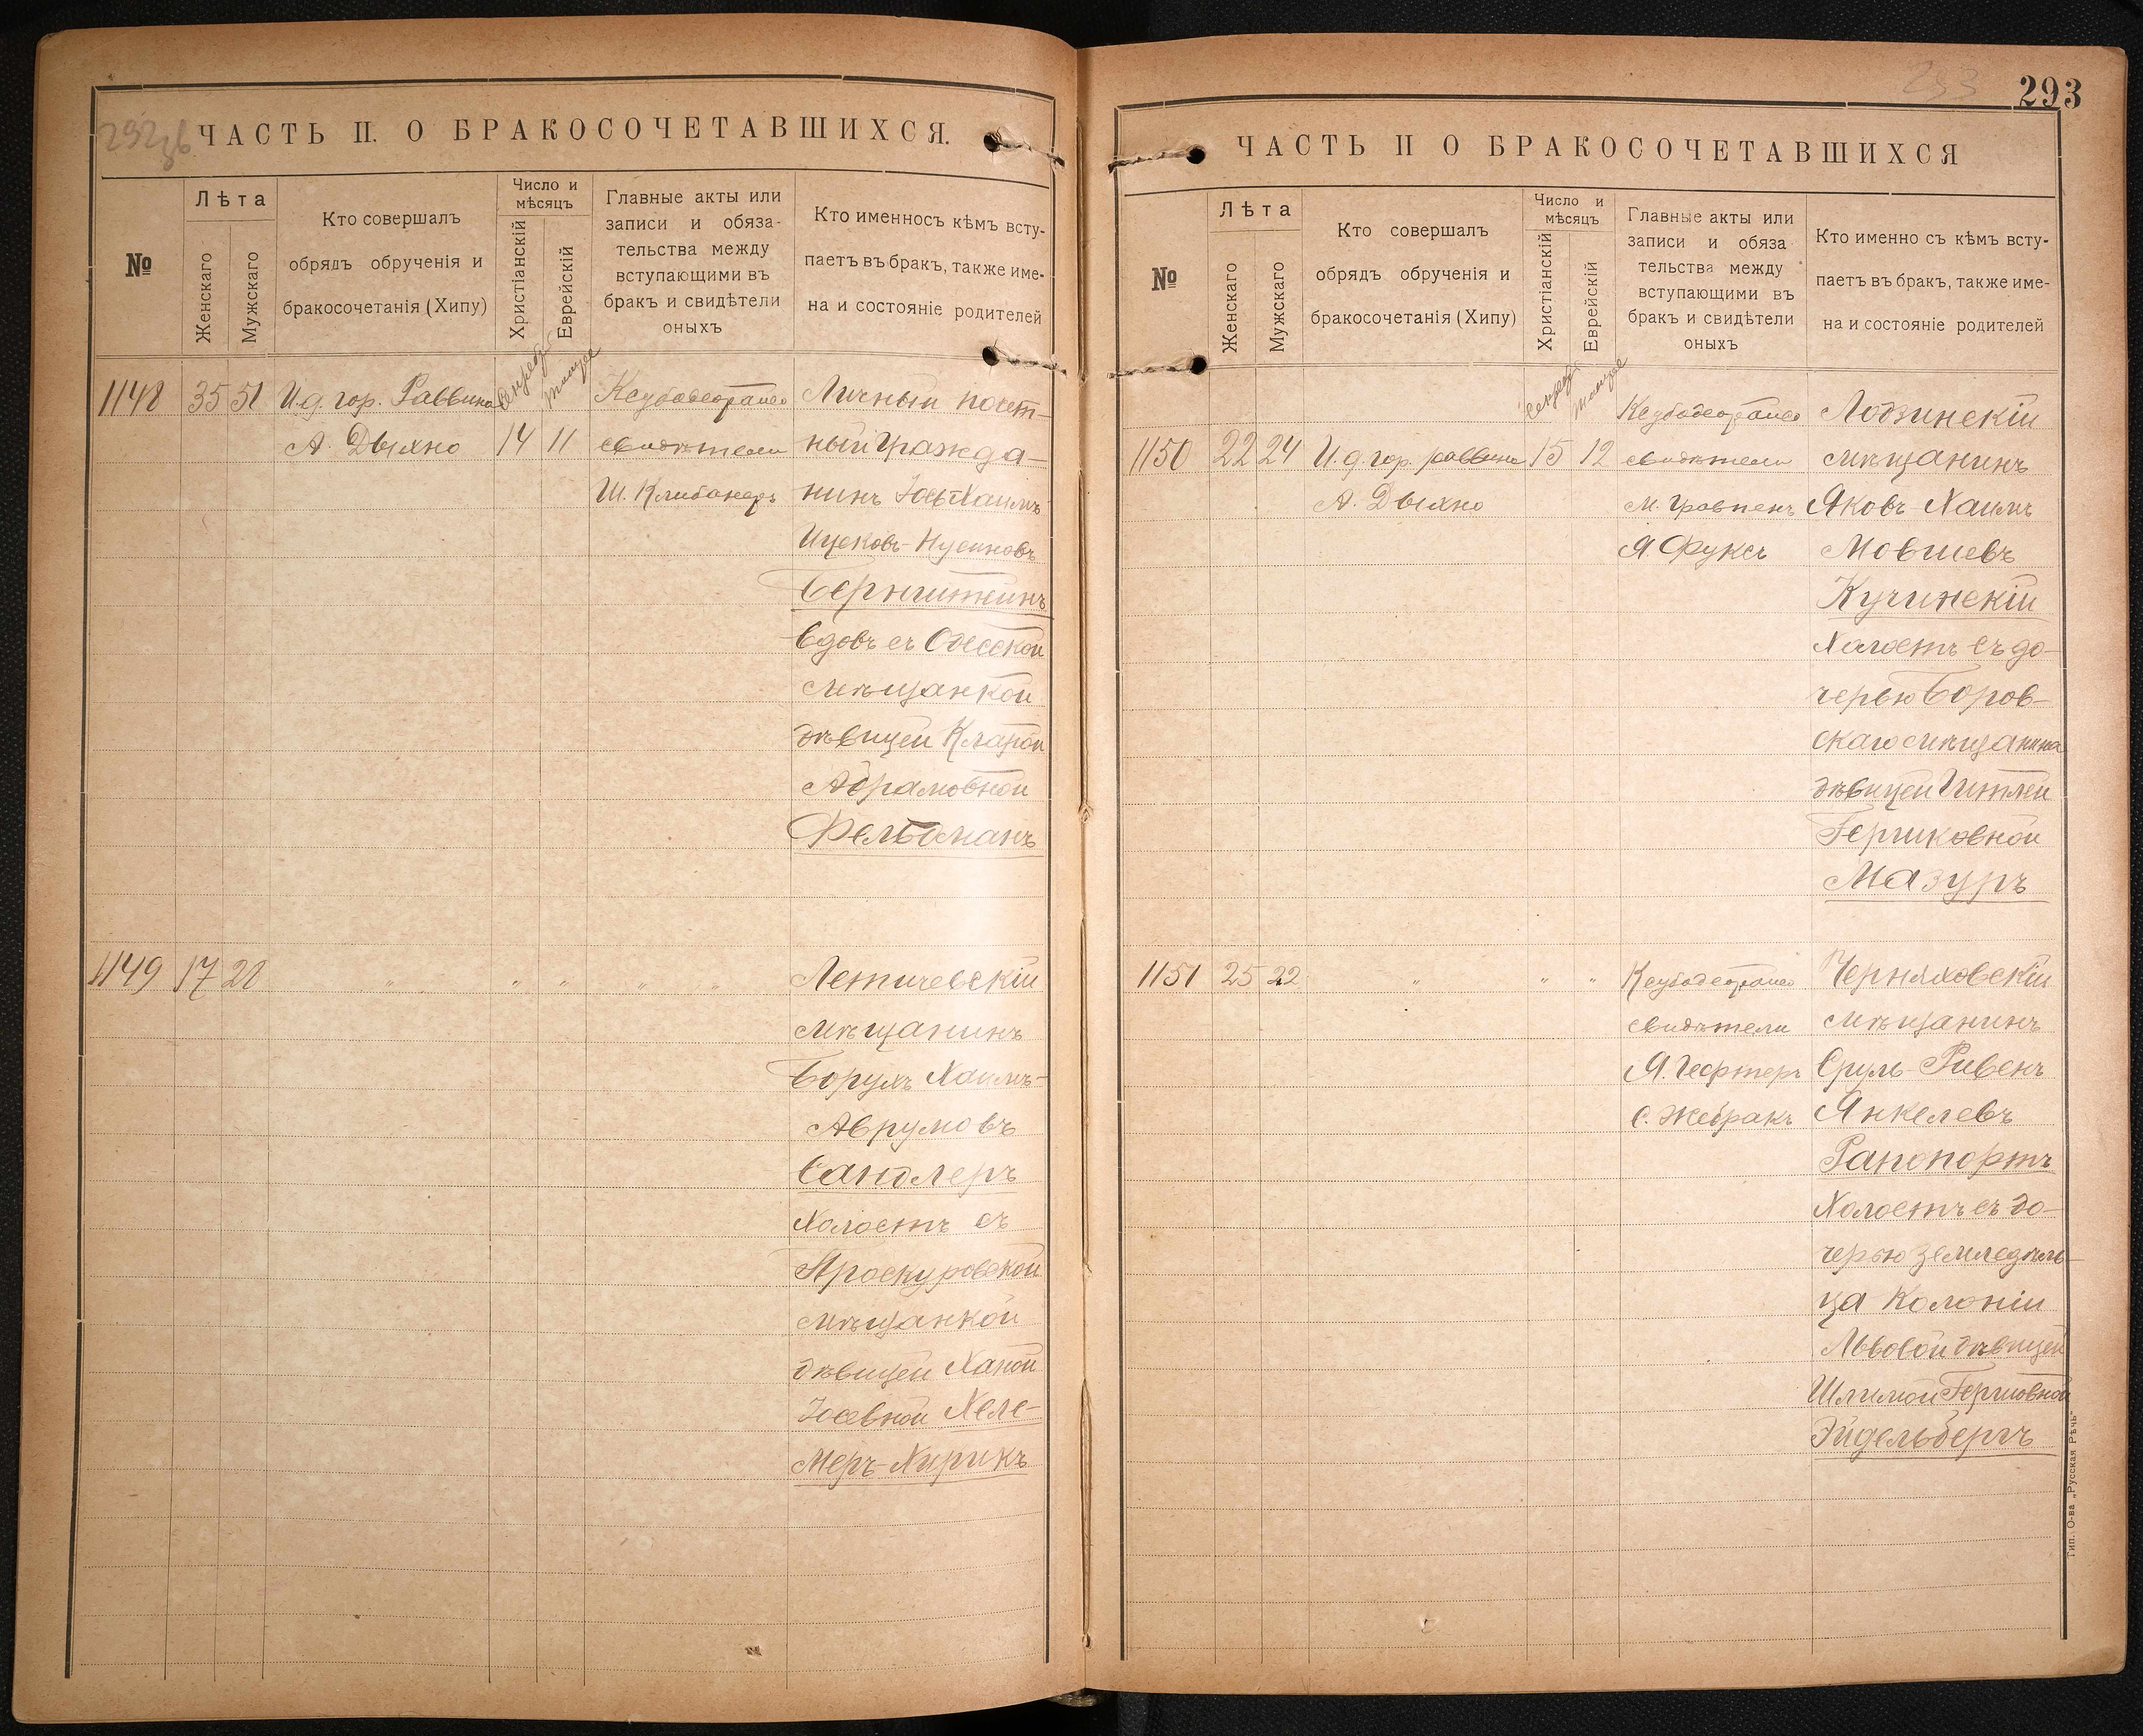 292об
ЧАСТЬ II. О БРАКОСОЧЕТАВШИХСЯ.
№
Лѣта
Женскаго
Мужскаго
Кто совершалъ
обрядъ обрученія и
бракосочетанія (Хипу)
Число и
мѣсяцъ
Христіанскій
Еврейскій
Главные акты или
записи и обяза-
тельства между
вступающими въ
бракъ и свидѣтели
оныхъ
Кто именносъ кѣмъ всту-
паетъ въ бракъ, также име-
на и состояніе родителей
1148 35 51 И.д. гор. Раввина Личный почет-
А. Дыхно 14 11 свидѣтели ный гражда-
Ш. Клибанеръ нинъ Іосъ Хаимъ
Ицковъ-Нусиновъ
Бернштейнъ
вдовъ съ Одесской
мѣщанкой
дѣвицей Кларой
Абрамовной
Фельдманъ
1149 17 20 " " " " " Летичевскій
мѣщанинъ
Борухъ Хаимъ-
Аврумовъ
Сандлеръ
Холостъ съ
Проскуровской
мѣщанкой
дѣвицей Ханой
Іосевной Хеле-
меръ-Хирикъ
293
293
ЧАСТЬ II О БРАКОСОЧЕТАВШИХСЯ
№
Лѣта
Женскаго
Мужскаго
Кто совершалъ
обрядъ обрученія и
бракосочетанія (Хипу)
Число и
мѣсяцъ
Христіанскій
Еврейскій
Главные акты или
записи и обяза
тельства между
вступающими въ
бракъ и свидѣтели
оныхъ
Кто именно съ кѣмъ всту-
паетъ въ бракъ, также име-
на и состояніе родителей
Лодзинскій
1150 22 24 И.д. гор. раввина 15 12 свидѣтели мѣщанинъ
А. Дыхно Яковъ-Хаимъ
Я. Фуксъ Мовшевъ
Кучинскій
Холостъ съ до-
черью Боров-
скаго мѣщанина
дѣвицей Гитлей
Гершковной
Мазуръ
1151 25 22 " " " Черняховскій
свидѣтели мѣщанинъ
Я. Гефтеръ Сруль-Ривенъ
С. Жебракъ Янкелевъ
Рапопортъ
Холостъ съ до-
черью земледѣль-
ца Колоніи
Львовой дѣвицей
Шлимой Гершовной
Эйдельбергъ
Тип. О-ва „Русская Рѣчь"